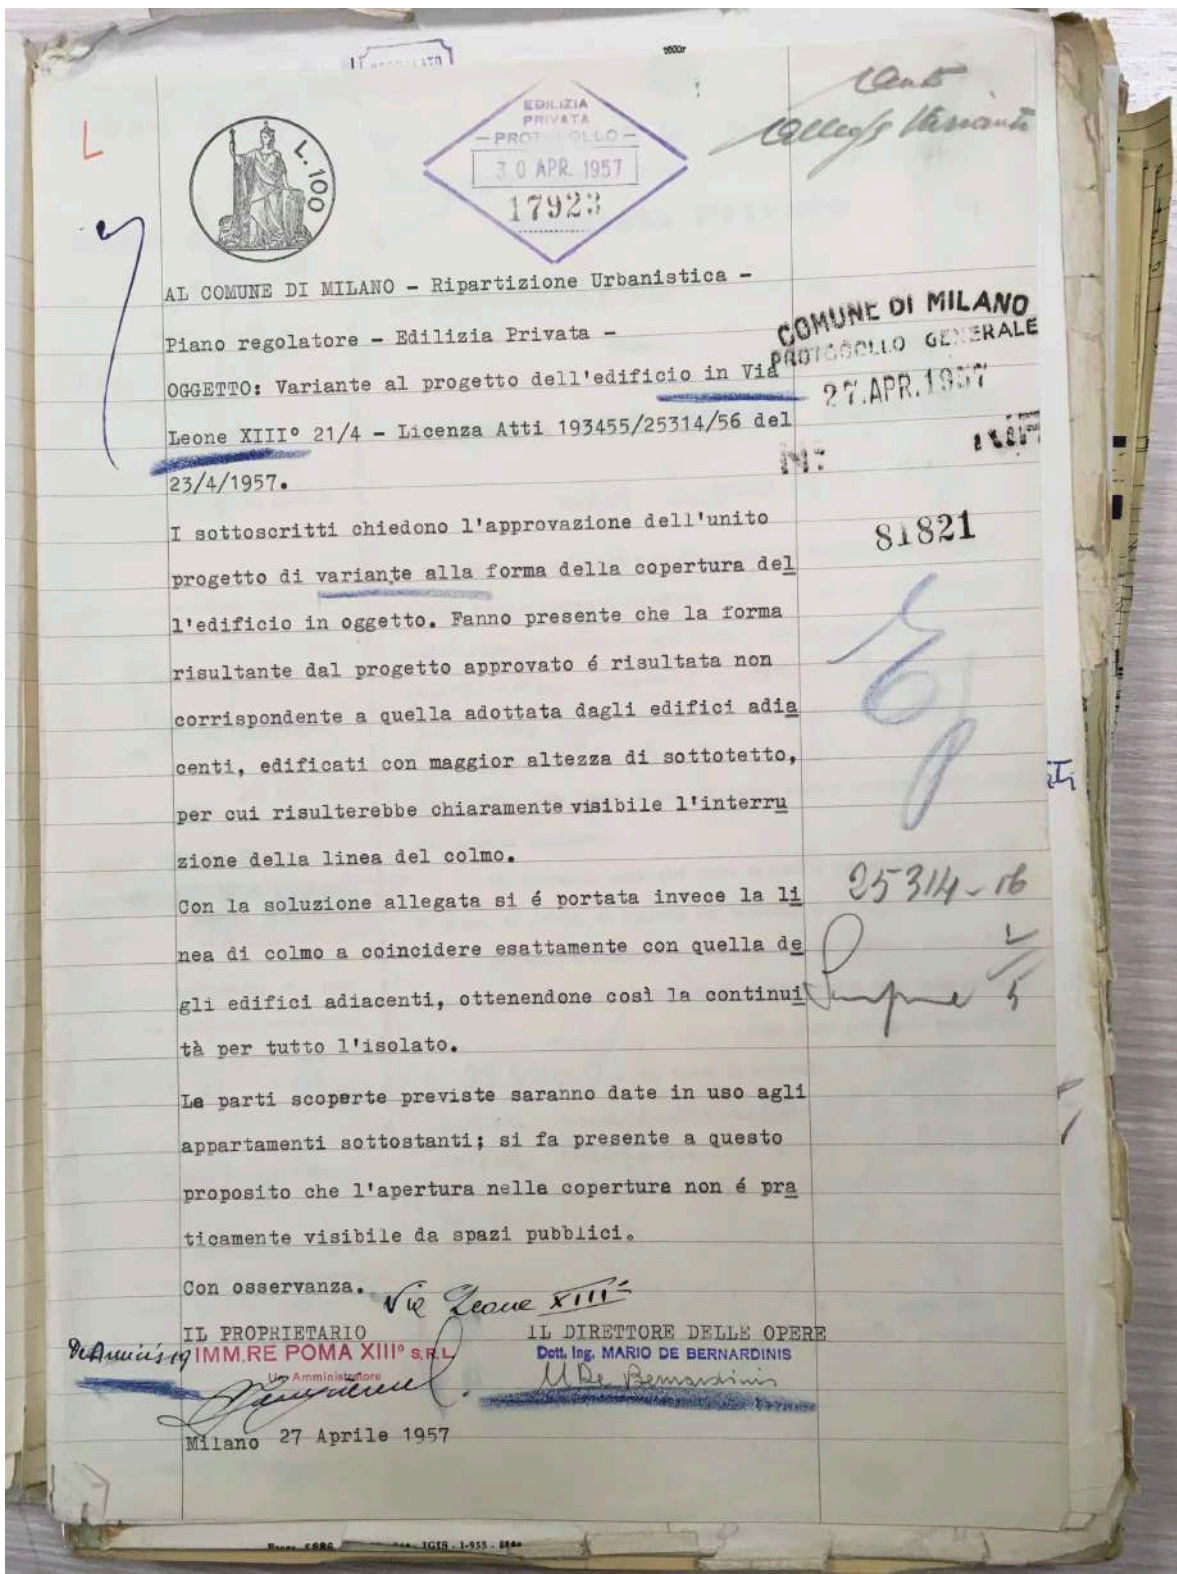 L
L. 100
EDILIZIA
PRIVATA
30 APR. 1957
17923
AL COMUNE DI MILANO - Ripartizione Urbanistica -
Piano regolatore - Edilizia Privata -
COMUNE DI MILANO
PROTOCOLLO GENERALE
27.APR.1957
OGGETTO: Variante al progetto dell'edificio in Via
Leone XIII° 21/4 - Licenza Atti 193455/25314/56 del
23/4/1957.
81821
I sottoscritti chiedono l'approvazione dell'unito
progetto di variante alla forma della copertura del
l'edificio in oggetto. Fanno presente che la forma
risultante dal progetto approvato é risultata non
corrispondente a quella adottata dagli edifici adia
centi, edificati con maggior altezza di sottotetto,
per cui risulterebbe chiaramente visibile l'interru
zione della linea del colmo.
Con la soluzione allegata si é portata invece la li
nea di colmo a coincidere esattamente con quella de
gli edifici adiacenti, ottenendone così la continui
tà per tutto l'isolato.
Le parti scoperte previste saranno date in uso agli
appartamenti sottostanti; si fa presente a questo
proposito che l'apertura nella coperture non é pra
ticamente visibile da spazi pubblici.
Con osservanza.
Via Leone XIII
IL PROPRIETARIO
IMM.RE POMA XIII° S.R.L.
Amministratore
IL DIRETTORE DELLE OPERE
Dott. Ing. MARIO DE BERNARDINIS
M De Bernardinis
Milano 27 Aprile 1957